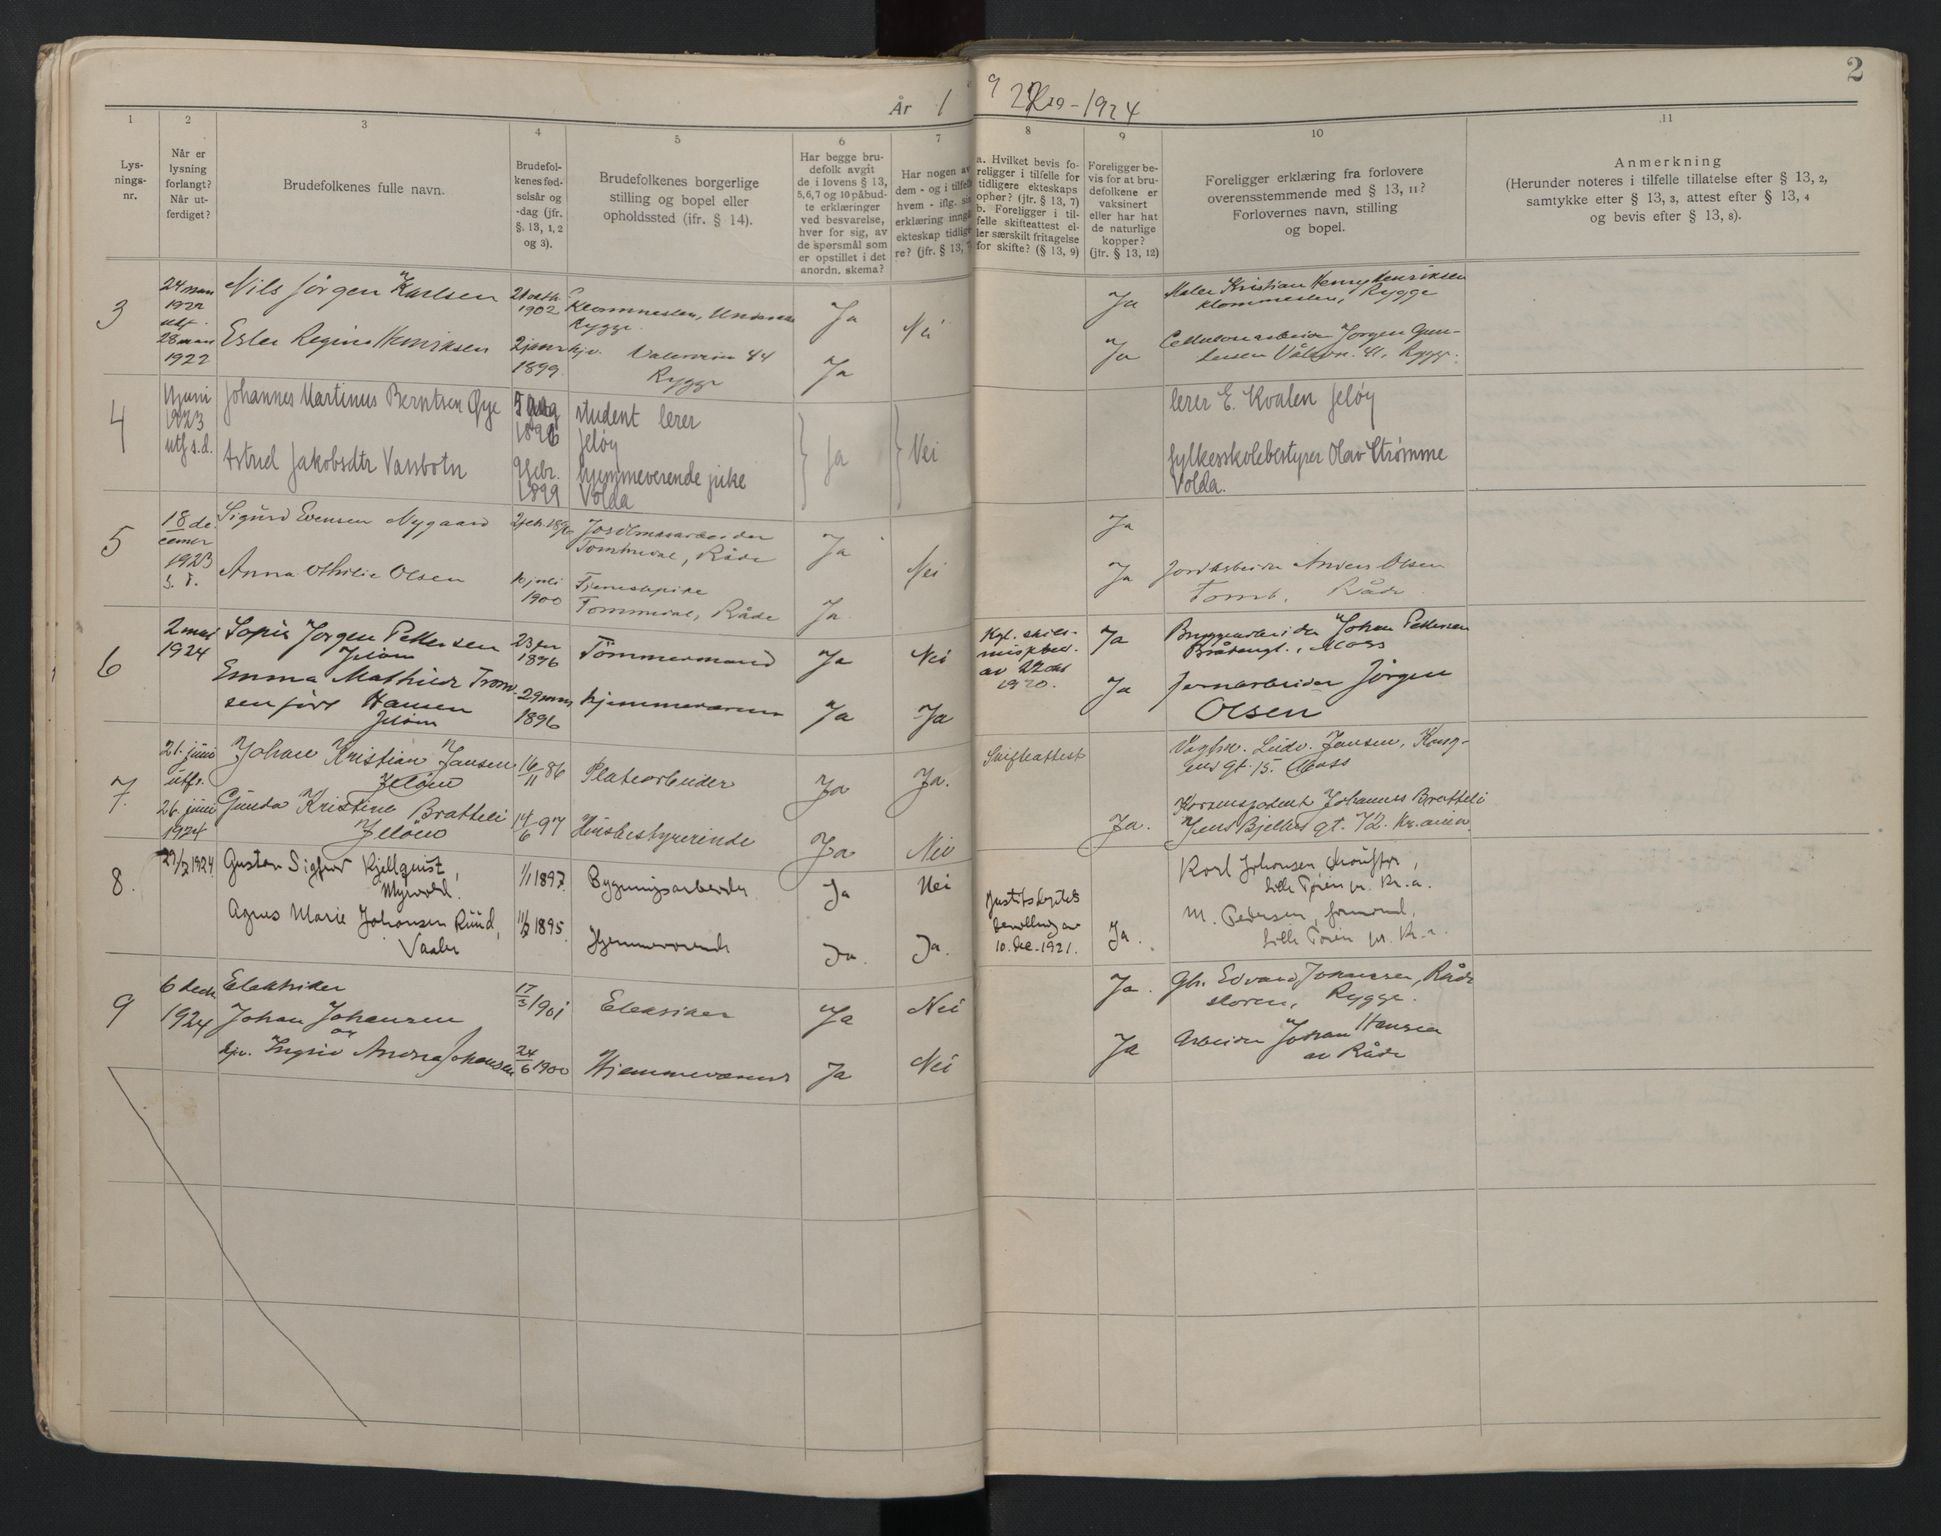 2
År 1922 - 1924
1
2
3
4
5
6
7
8
9
10
11
Lys-
nings-
nr.
Når er
lysning
forlangt?
Når ut-
ferdiget?
Brudefolkenes fulle navn.
Brudefol-
kenes fød-
selsår og
-dag (jfr.
§. 13, 1, 2
og 3).
Brudefolkenes borgerlige
stilling og bopel eller
opholdssted (ifr. § 14).
Har begge bru-
defolk avgit
de i lovens § 13,
5,6,7 og 10 påbud-
te erklæringer
ved besvarelse,
hver for sig, av
de spørsmål som
er opstillet i det
anordn. skema?
Har nogen av
dem - og i tilfelle
hvem - iflg. sin
erklæring inngått
ekteskap tidlige-
re? (jfr. § 13, 7)
a. Hvilket bevis fo-
religger i tilfelle for
tidligere ekteskaps
opher? (jfr. § 13, 7)
b. Foreligger i til-
felle skifteattest el-
ler særskilt fritagelse
for skifte? (§ 13, 9)
Foreligger be-
vis for at bru-
defolkene er
vaksinert
eller har hat
de naturlige
kopper?
(jfr. § 13, 12)
Foreligger erklæring fra forlovere
overensstemmende med § 13, 11?
Forlovernes navn, stilling
og bopel.
Anmerkning
(Herunder noteres i tilfelle tillatelse efter § 13, 2,
samtykke efter § 13, 3, attest efter § 13, 4
og bevis efter § 13, 8).
3
24 mars
1922
utf.
28 mars
1922
Nils Jørgen Karlsen
Ester Regine Henriksen
1902
2 janr
1899
Rygge.
hjv. Valervein 44
Rygge
Ja
Ja
Nei
Ja
Ja
Maler Kristian Henry Henriksen
Rygge
Cellulosearbeider Jørgen Gun-
41, Rygge.
4
11 juni
1923
utf s.d.
Johannes Martinus Berntsen Øye
Astrid Jakobsdtr Vassbotn
5 aug
1896
9 febr.
1899
student lærer
Jeløy
hjemmeverende pike
Volda
Ja
Nei
lærer E. Kvalen Jeløy
fylkesskolebestyrer Olav Strømme
Volda.
5
18 de-
cember
1923
s. d.
Sigurd Evensen Nygaard
Anna Othilie Olsen
10 juli
1900
Tomb, Råde
Tjenestepike
Råde
Ja
Ja
Nei
Ja
Ja
Jordarbeider Anders Olsen
Tomb. Råde.
6
2 mai
1924
Jørgen Pettersen
Jeløen
Emma Mathilde Trom-
sen født Hansen
Jeløen
1896
29 mars
1896
Tømmermand
hjemmeværende
Ja
Ja
Nei
Ja
Kgl. skils-
av 22 okt
1920.
Ja
Ja
Bryggearbeider Johan Pettersen
Moss
Jernarbeider Jørgen
Olsen
7.
21. juni
utf.
26. juni
1924
Johan Kristian Jansen
Jeløen
Gunda Kristine Bratteli
Jeløen
16/11 86
14/6 97
Platearbeider
Husbestyrerinde
Ja
Ja
Ja.
Nei
Skifteattest
Ja.
Ludv. Jansen, Kong-
ens gt. 15. Moss
Korrespondent Johannes Bratteli
Jens Bjelkes gt. 72. Kr.ania
8.
1924
Gustav Sigfrid Kjellquist,
Myrvold.
Agnes Marie Johansen Ruud,
Vaaler
1/1 1897.
1895.
Bygningsarbeider
Hjemmeværende
Ja
Ja.
Nei
Ja.
bevilling av
10. dec. 1921.
Ja.
Karl Johansen,
Lille Tøien pr. Kr.a.
M. Pedersen, formand,
Lille Tøien pr. Kr.a.
9
6 decbr
1924
Elektriker
Johan Johansen
og
hjv. Ingrid Andrea Johansen
17/3 1901
24/6 1900
Elektriker
Hjemmeværende
Ja
Ja
Nei
Nei
Ja.
Ja
Gbr. Edvard Johansen, Råde
Rygge.
Arbeider Johan Hansen
av Råde